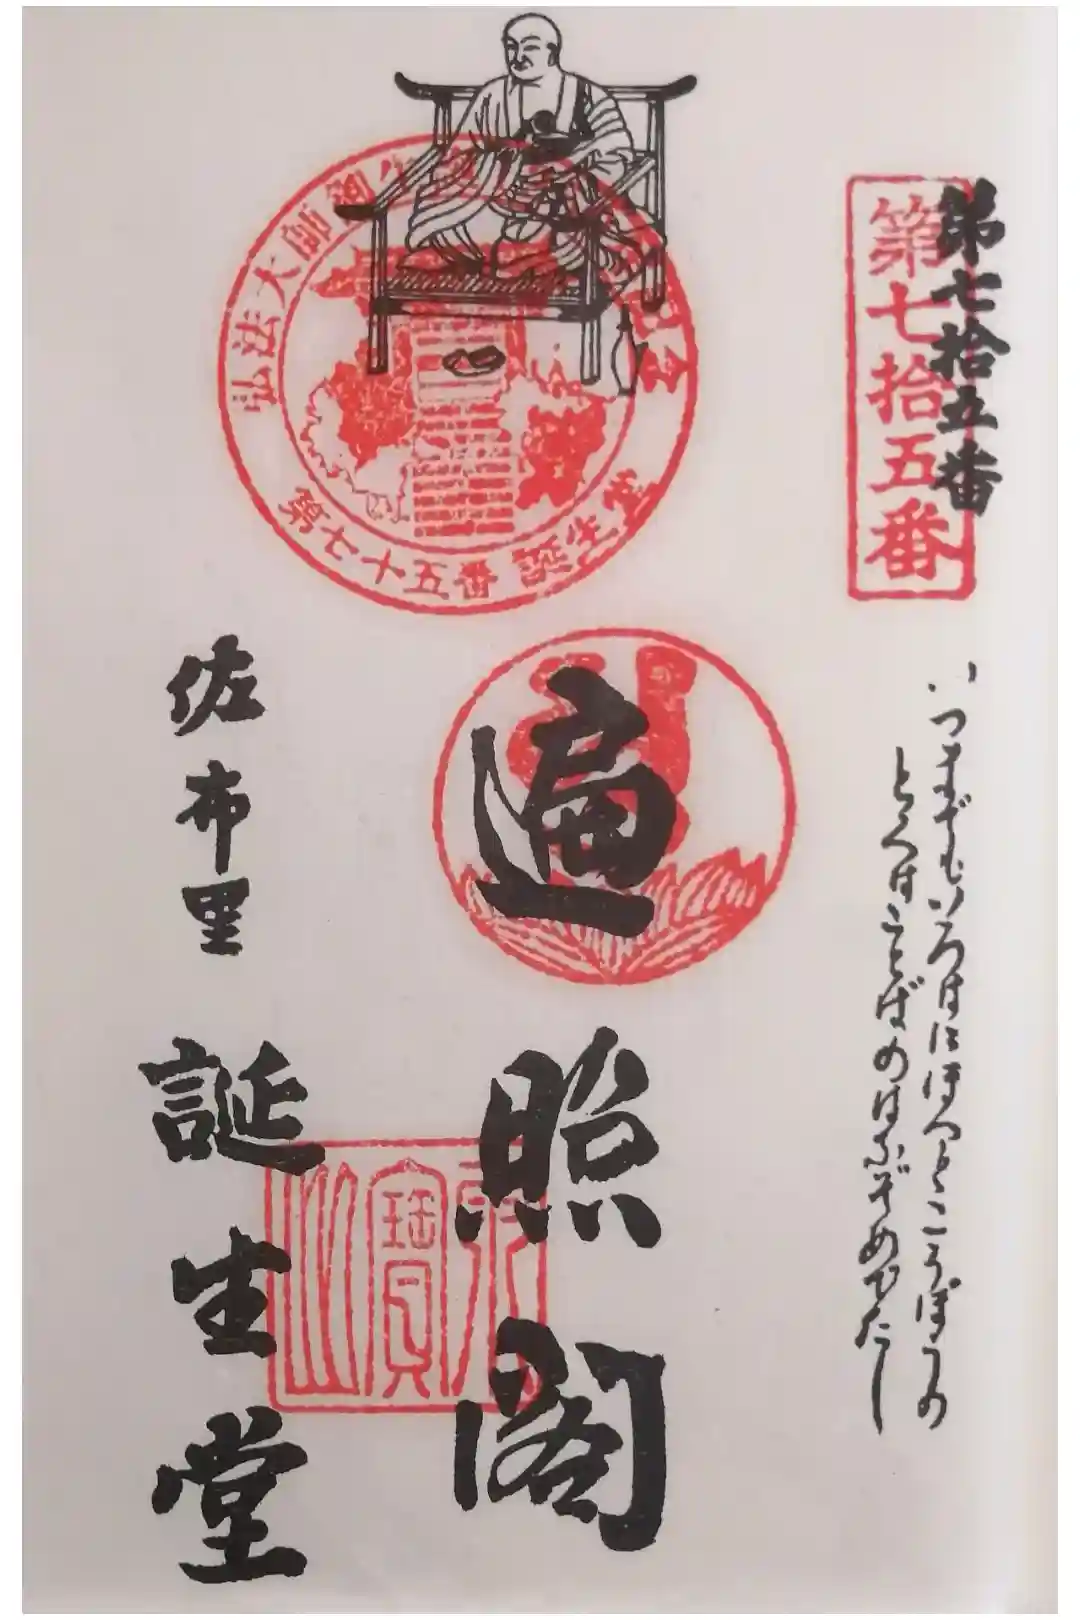 第七拾五番
第七拾五番
いつまでもいろはにほへとこうぼうの
とくはことばのはなぞめでたし
弘法大師
第七十五番 誕生堂
遍照閣
佐布里
誕生堂